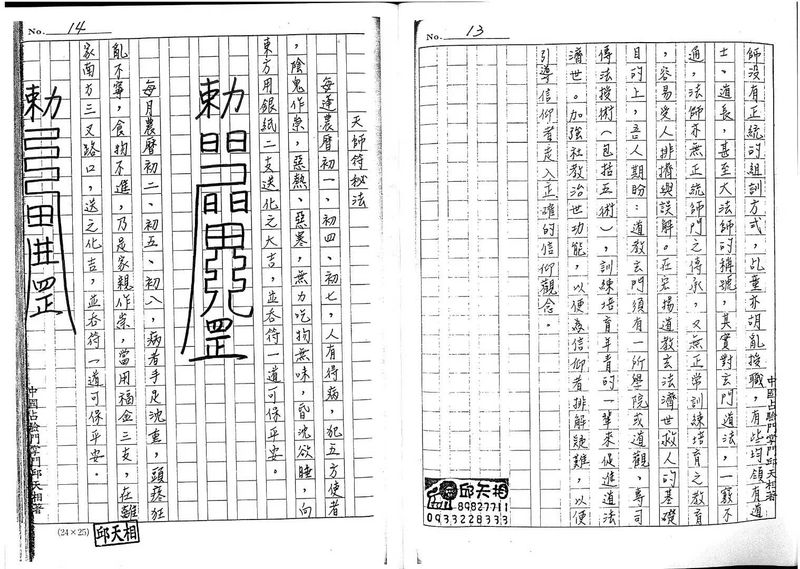 No. 13
師沒有正統的組訓方式，乩童亦胡亂授職，有些均領有道
士、道長，甚至大法師的稱號，其實對玄門道法，一竅不
通，法師亦無正統師門之傳承，又無正常訓練培育之教育
，容易受人排擠與誤解。在宏揚道教玄法濟世救人的基礎
目的上，吾人期盼：道教玄門須有一所學院或道觀，專司
傳法授術（包括五術），訓練培育年青的一輩來促進道法
濟世。加強社教治世功能，以便為信仰者排解疑難，以便
引導信仰者走入正確的信仰觀念。
中國占驗門掌門邱天相著
邱天相
89827711
0933228333
No. 14
天師符秘法
每逢農曆初一、初四、初七，人有得病，犯五方使者
，陰鬼作祟，惡熱、惡寒，無力吃物無味，昏沈欲睡，向
東方用銀紙二支送化之大吉，並吞符一道可保平安。
勅
每月農曆初二、初五、初八，病者手足沈重，頭疼狂
亂不寧，食物不進，乃是家親作祟，當用福金三支，在離
家南方三叉路口，送之化吉，並吞符一道可保平安。
勅
中國占驗門掌門邱天相著
(24×25)
邱天相